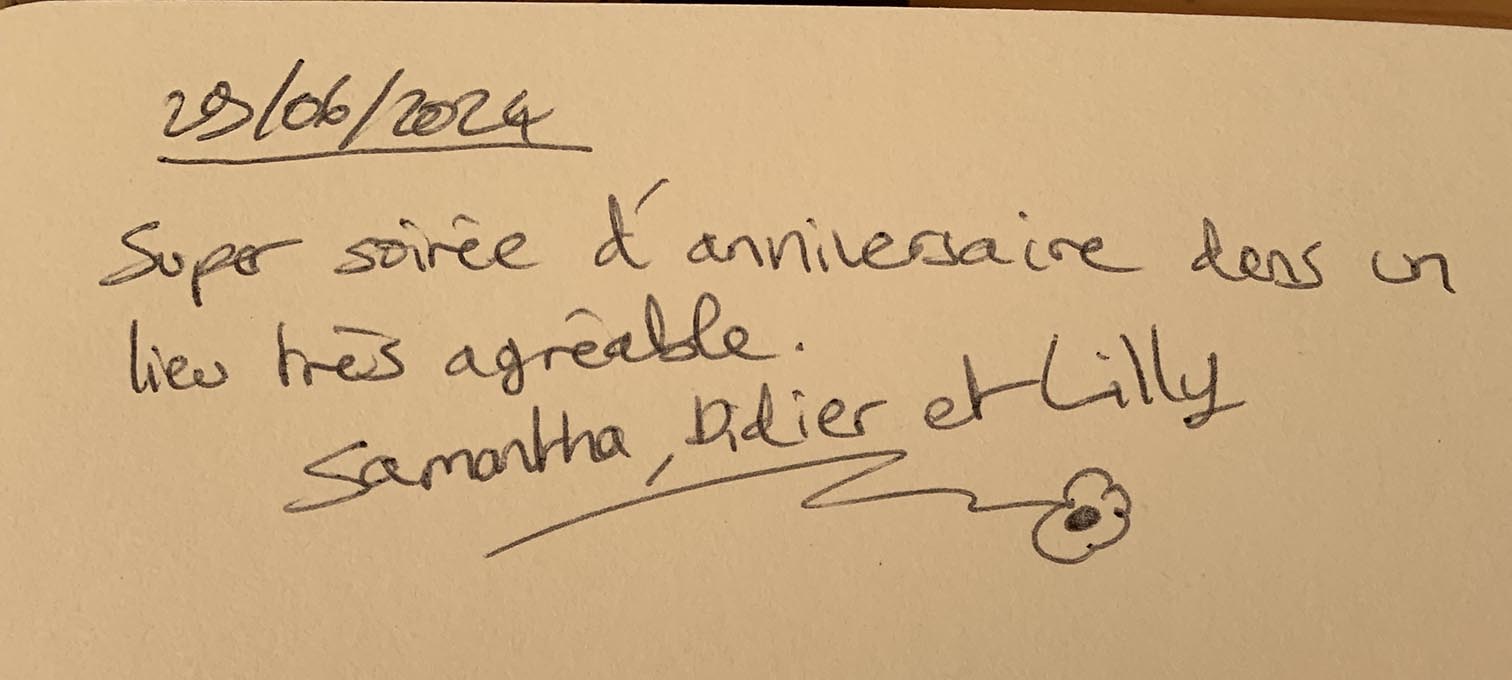 29/06/2024
Super soirée d'anniversaire dans un
lieu très agréable.
Samantha, Didier et Lilly